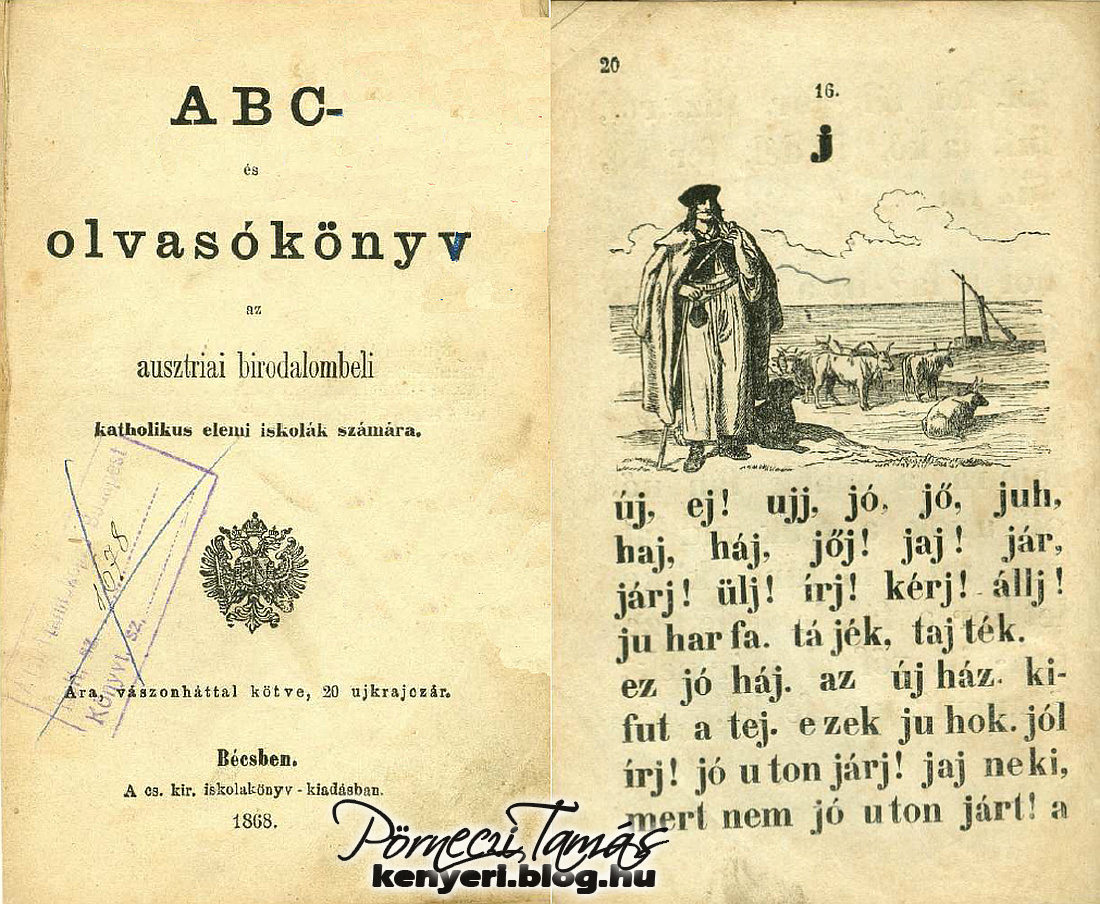 ABC-
és
olvasókönyv
az
ausztriai birodalombeli
katholikus elemi iskolák számára.
1678
Könyvt. sz.
Ára, vászonháttal kötve, 20 ujkrajczár.
Bécsben.
A cs. kir. iskolakönyv-kiadásban.
1868.
20
16.
j
új, ej! ujj, jó, jő, juh,
haj, háj, jőj! jaj! jár,
járj! ülj! írj! kérj! állj!
ju har fa. tá jék, taj ték.
ez jó háj. az új ház. ki-
fut a tej. e zek ju hok. jól
írj! jó u ton járj! jaj ne ki,
mert nem jó u ton járt! a
Pörneczi Tamás
kenyeri.blog.hu